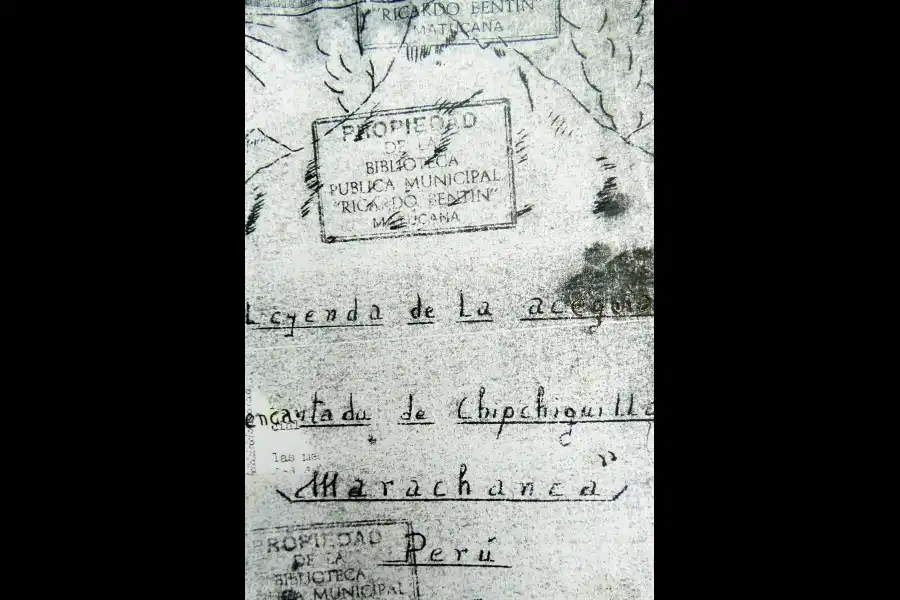 "RICARDO BENTIN"
MATUCANA
PROPIEDAD
DE LA
BIBLIOTECA
PUBLICA MUNICIPAL
"RICARDO BENTIN"
MATUCANA
Leyenda de la acequia
encantada de Chipchiquilla
las
"Marachanca"
Perú
PROPIEDAD
DE LA
BIBLIOTECA
MUNICIPAL